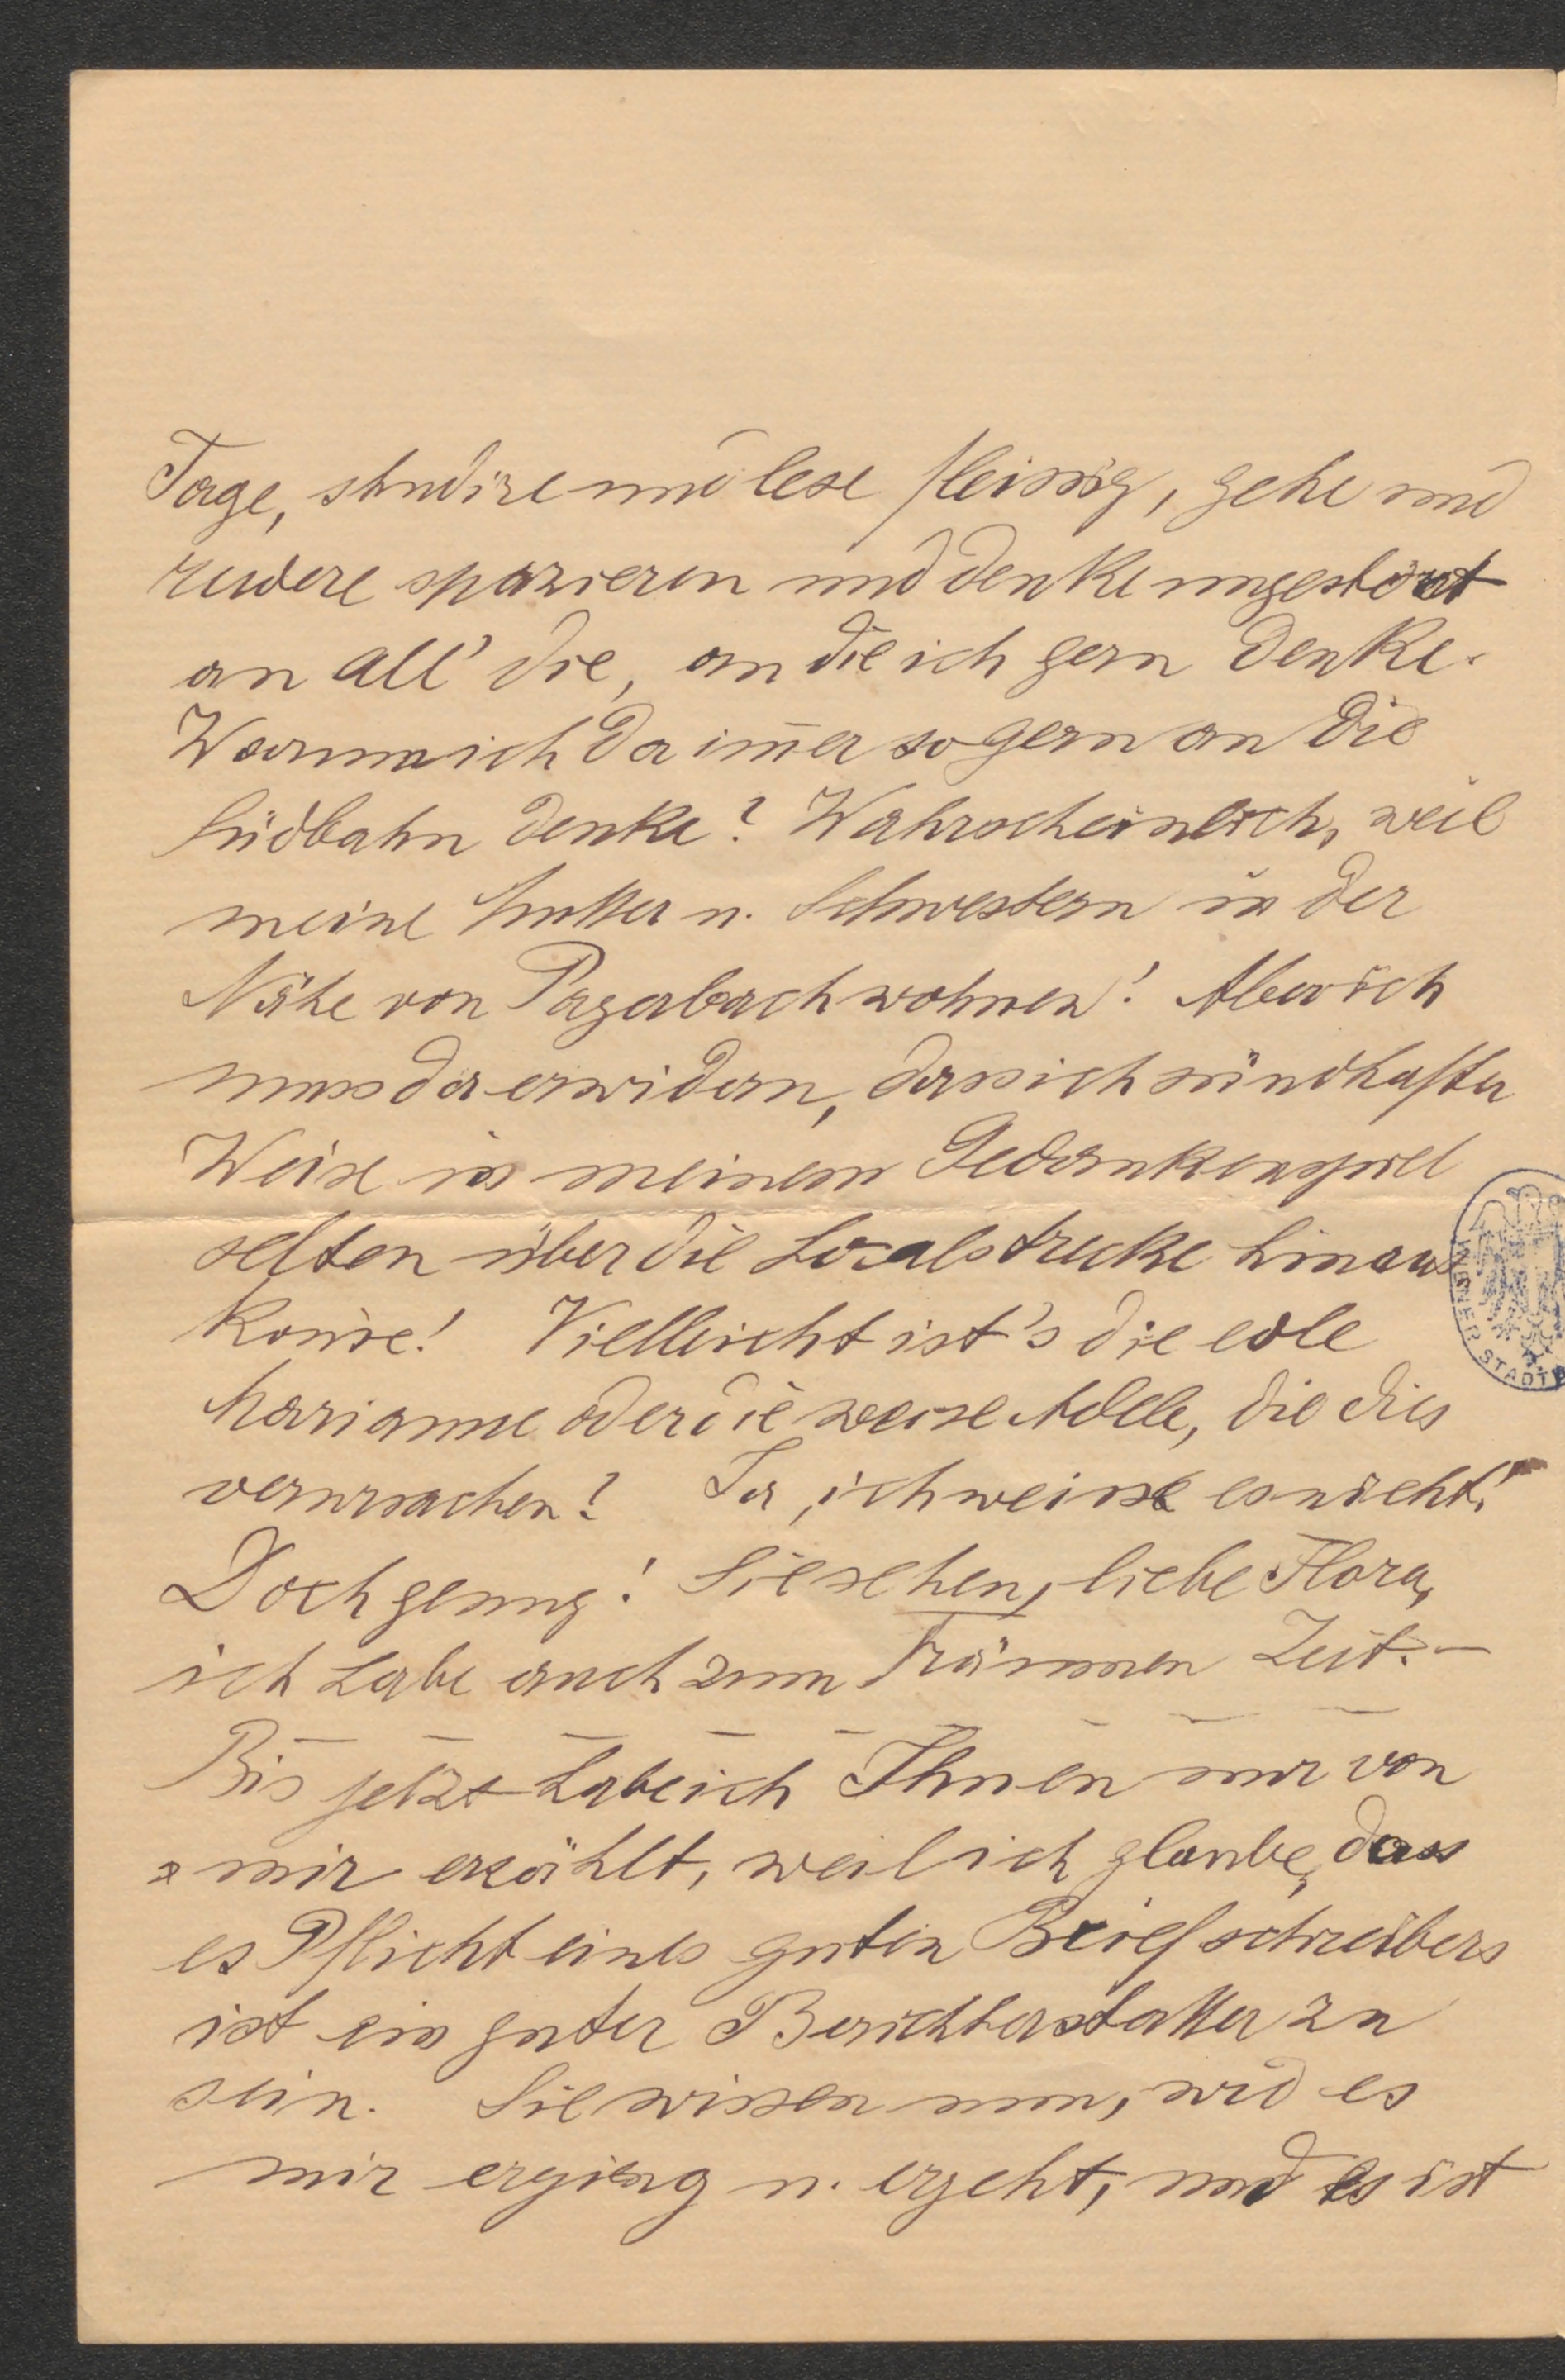 Tage, studire und lese fleissig, gehe und
rudere spazieren und denke ungestört
an all' die, an die ich gern denke.
Warum ich da im̅er so gern an die
Südbahn denke? Wahrscheinlich, weil
meine Mutter u. Schwestern in der
Nähe von Payerbach wohnen! Aber ich
muss da erwidern, dass ich sündhafter
Weise in meinem Gedankenspiel
selten über die Localstrecke hinaus
kom̅e! Vielleicht ist's die edle
Marianne oder die weise Adele, die dies
verursachen? Ja, ich weiss es nicht!
Doch genug! Sie sehen, liebe Flora,
ich habe auch zum Träumen Zeit. –
Bis jetzt habe ich Ihnen nur von
mir erzählt, weil ich glaube, dass
es Pflicht eines guten Briefschreibers
ist ein guter Berichterstatter zu
sein. Sie wissen nun, wie es
mir ergieng u. ergeht, und es ist
WIENER STADTB